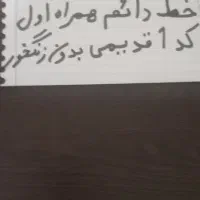 خط دائم همراه اول
کد 1 قدیمی بدون زنگخور